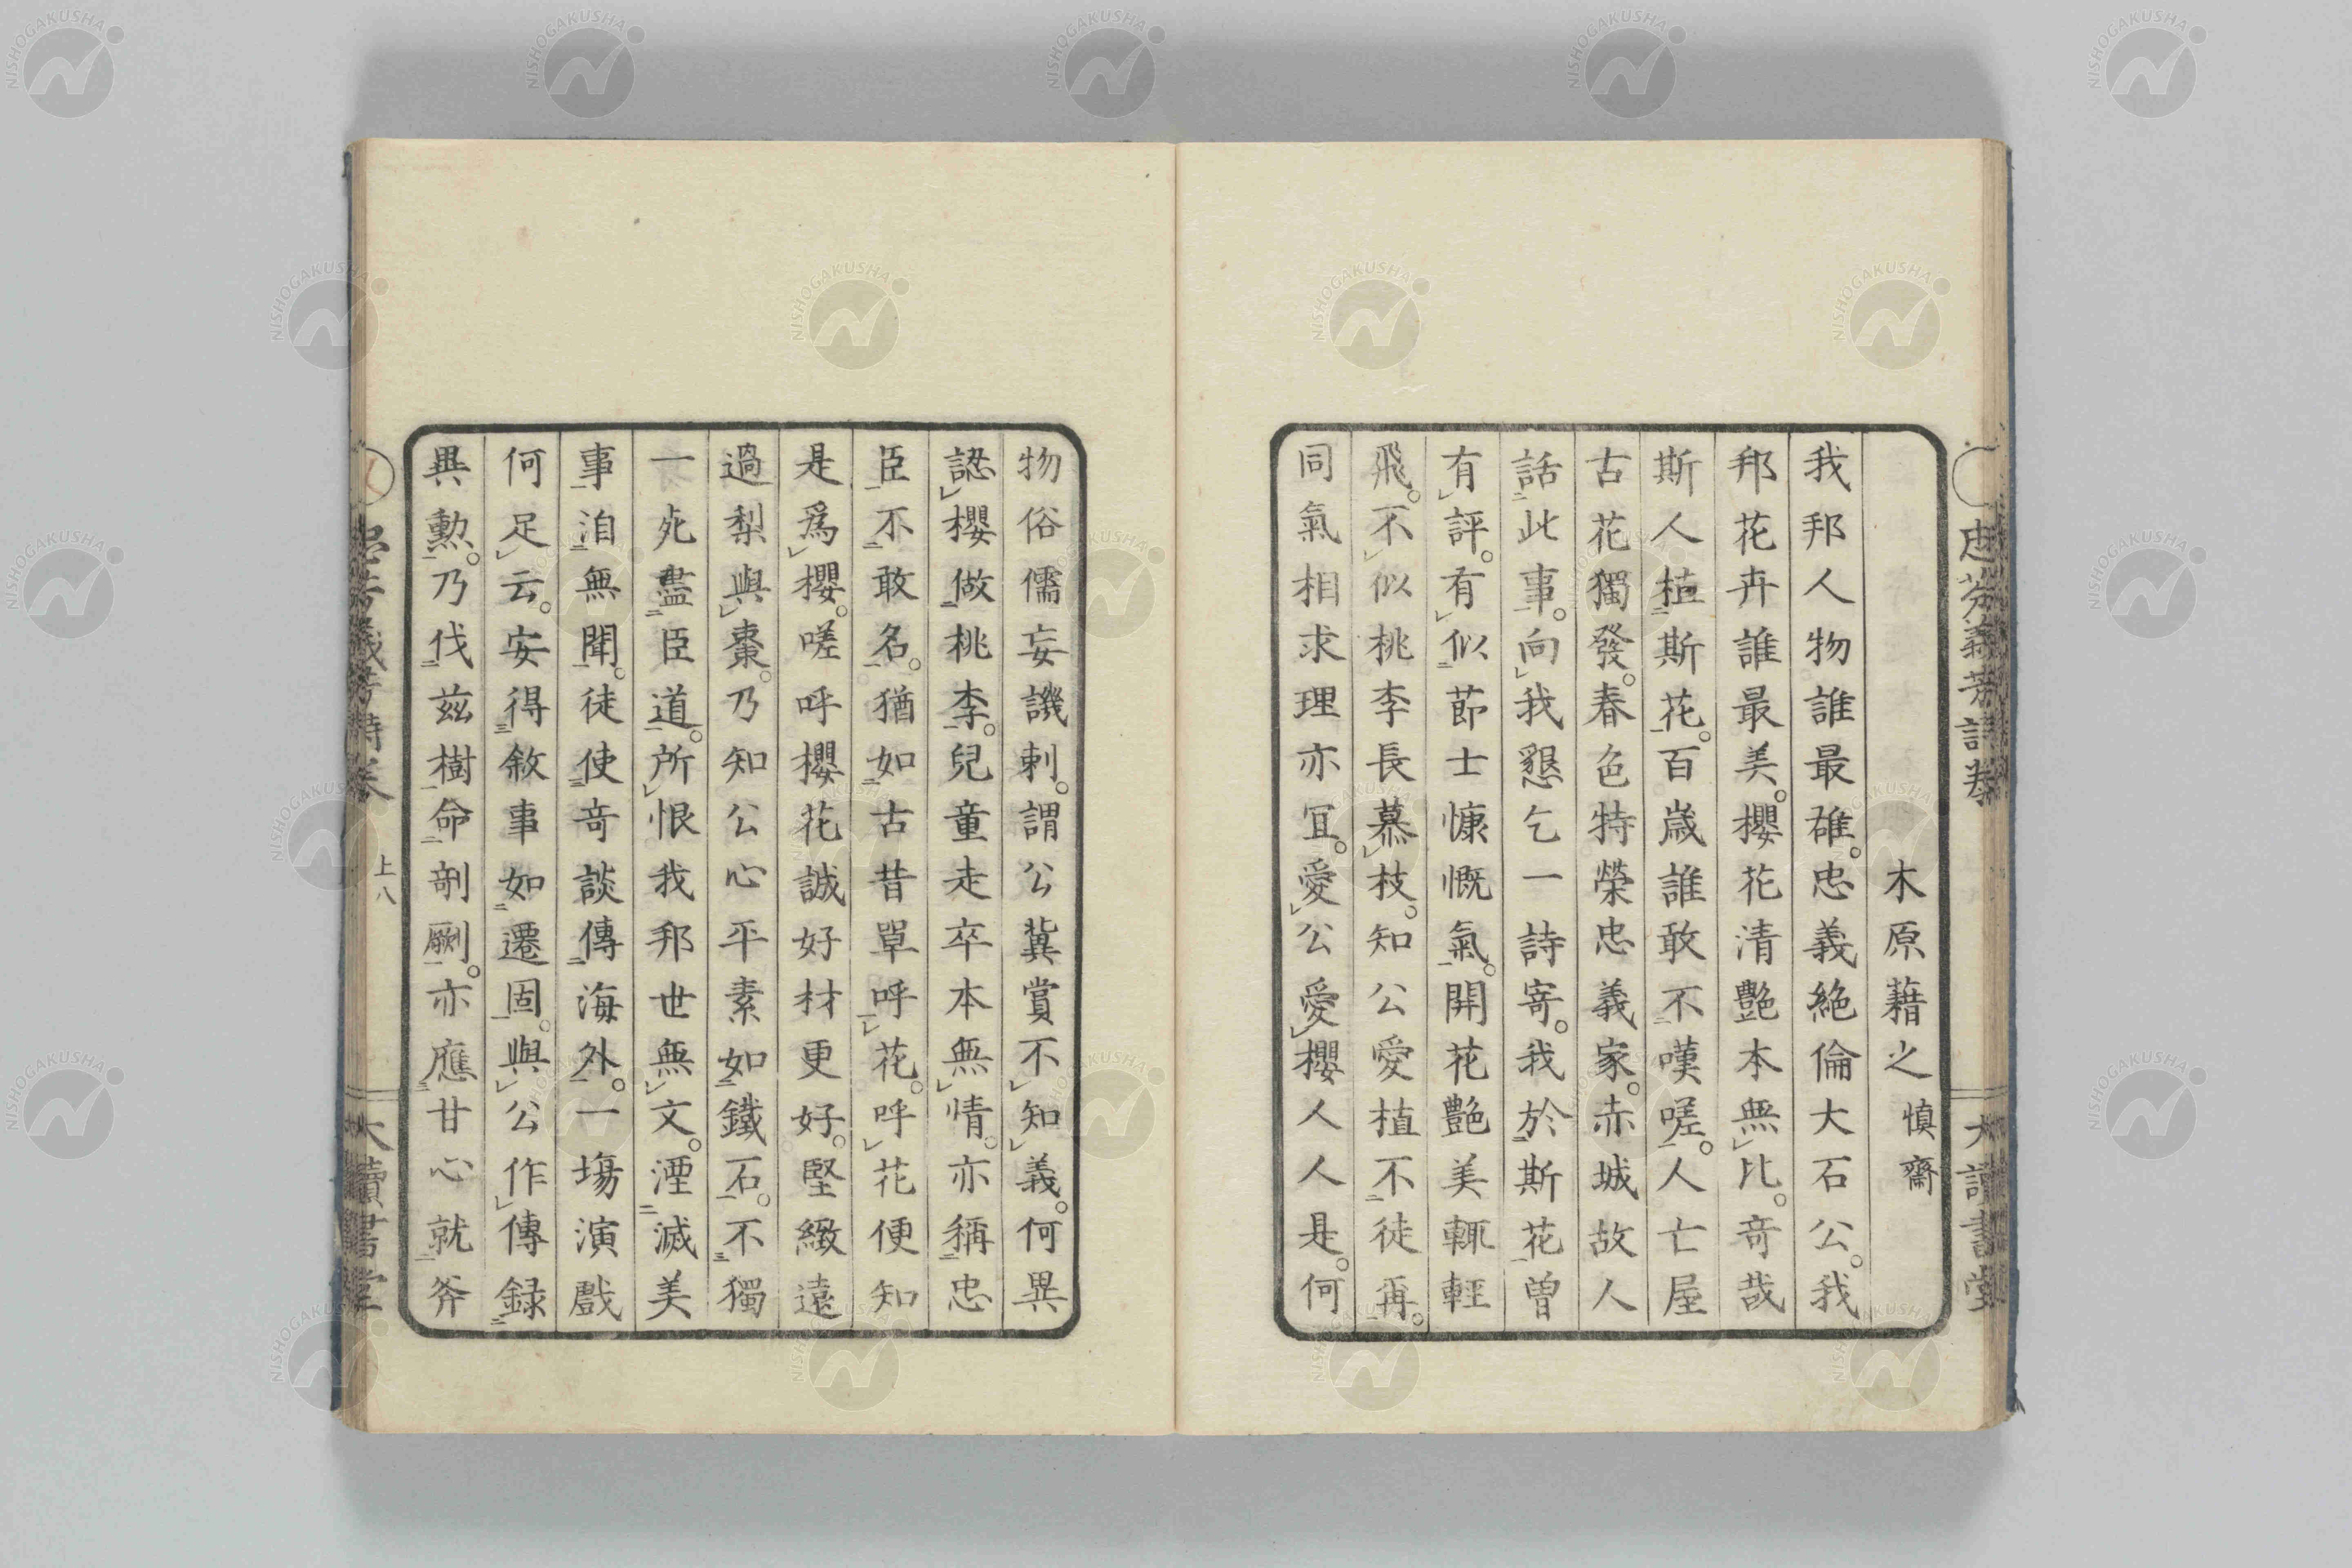 木原藉之 慎齋
我邦人物誰最碓。忠義絶倫大石公。我
邦花卉誰最美。櫻花清艶本無比。奇哉
斯人植斯花。百歳誰敢不嘆嗟。人亡屋
古花獨發。春色特榮忠義家。赤城故人
話此事。向我懇乞一詩寄。我於斯花曽
有評。有似莭士慷慨氣。開花艶美輒輕
飛。不似桃李長慕枝。知公愛植不徒再。
同氣相求理亦冝。愛公愛櫻人人是。何
物俗儒妄譏刺。謂公冀賞不知義。何異
認櫻做桃李。兒童走卒本無情。亦稱忠
臣不敢名。猶如古昔單呼花。呼花便知
是爲櫻。嗟呼櫻花誠好材更好。堅緻遠
過梨與棗。乃知公心平素如鐵石。不獨
一死盡臣道。所恨我邦世無文。湮滅美
事洎無聞。徒使奇談傳海外。一塲演戲
何足云。安得敘事如遷固。與公作傳録
異勲。乃伐兹樹命剞劂。亦應甘心就斧
忠芬義芳詩巻
上八
大讀書堂
NISHOGAKUSHA